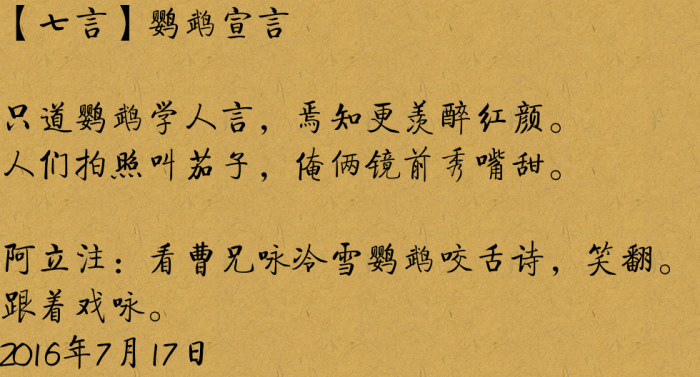 【七言】鹦鹉宣言
只道鹦鹉学人言，焉知更羡醉红颜。
人们拍照叫茄子，俺俩镜前秀嘴甜。
阿立注：看曹兄咏冷雪鹦鹉咬舌诗，笑翻。
跟着戏咏。
2016年7月17日